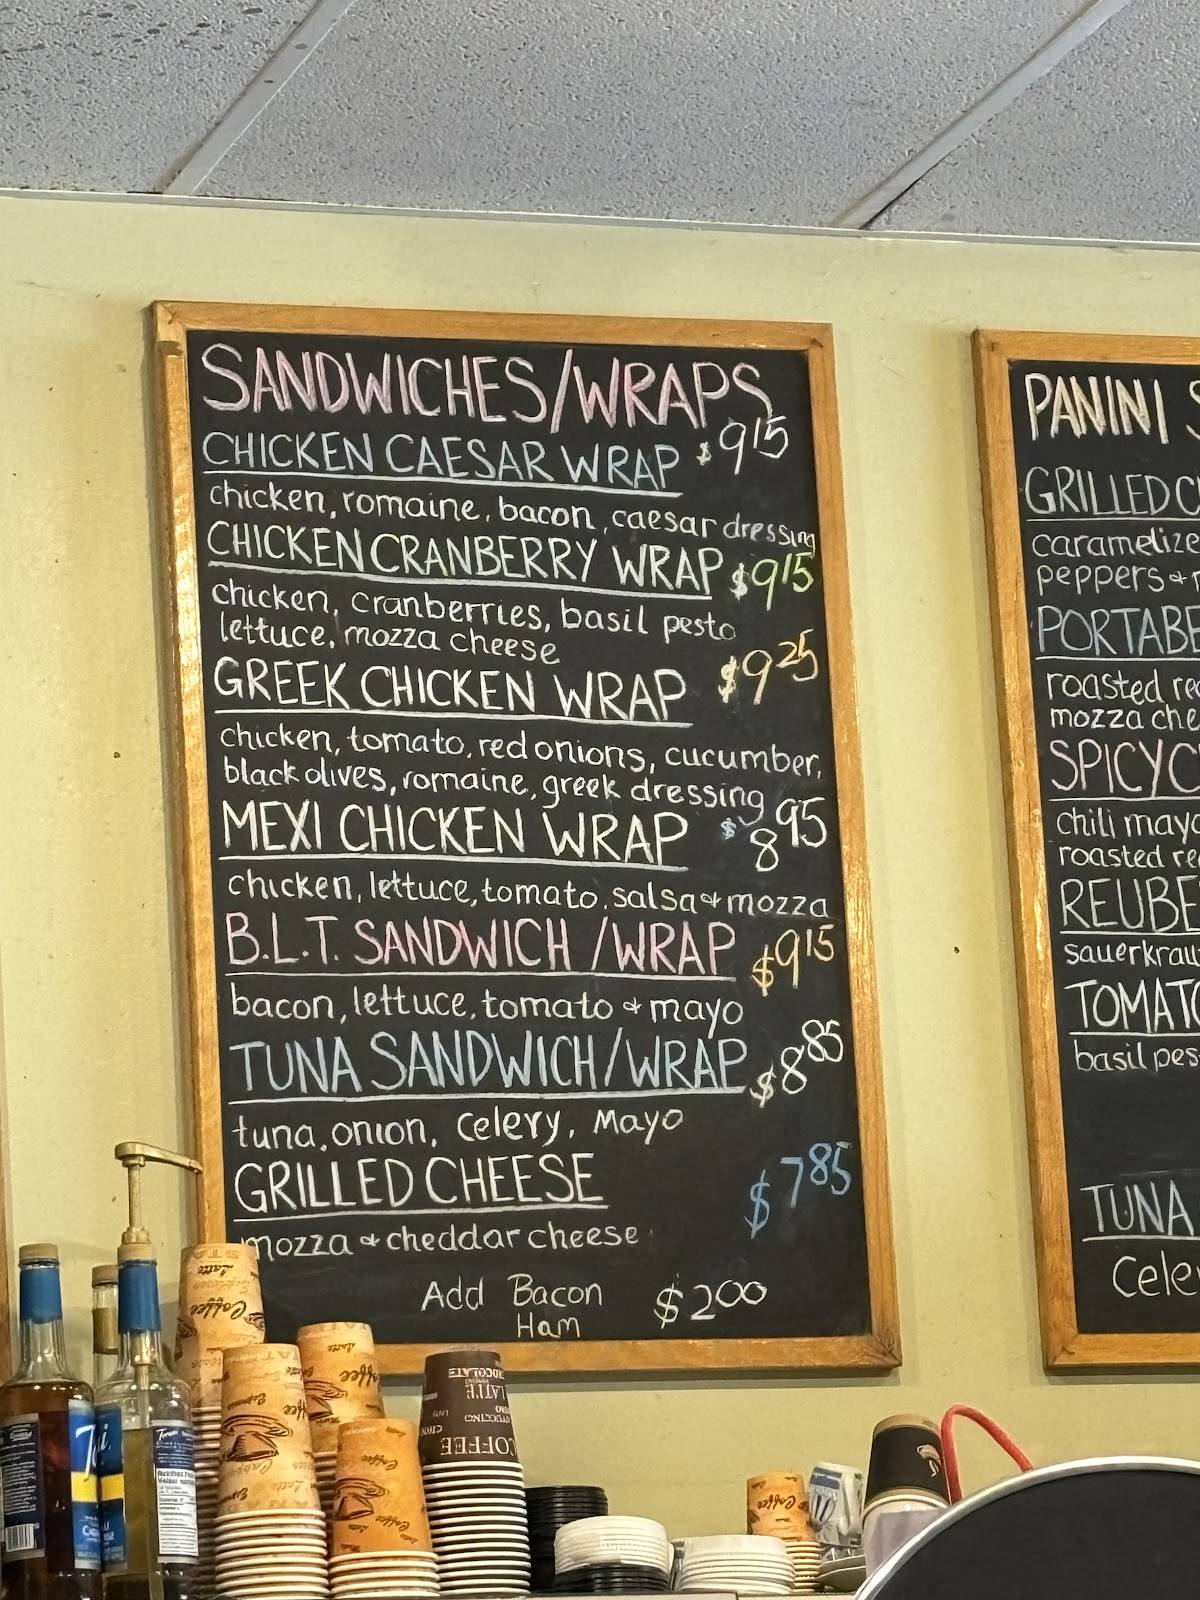 SANDWICHES/WRAPS
CHICKEN CAESAR WRAP $9 15
chicken, romaine, bacon, caesar dressing
CHICKEN CRANBERRY WRAP $9 15
chicken, cranberries, basil pesto
lettuce, mozza cheese
GREEK CHICKEN WRAP $9 25
chicken, tomato, red onions, cucumber,
black olives, romaine, greek dressing
MEXI CHICKEN WRAP $8 95
chicken, lettuce, tomato, salsa & mozza
B.L.T. SANDWICH /WRAP $9 15
bacon, lettuce, tomato & mayo
TUNA SANDWICH/WRAP $8 85
tuna, onion, celery, Mayo
GRILLED CHEESE $7 85
mozza & cheddar cheese
Add Bacon $2 00
Ham
PANINI
GRILLED
caramelize
peppers &
PORTABE
roasted
mozza che
SPICY
chili mayo
roasted
REUBE
sauerkrau
TOMATO
basil pes
TUNA
Cele
Latte
Coffee
Coffee
Coffee
CHOCOLATE
LATTE
COFFEE
Coffee